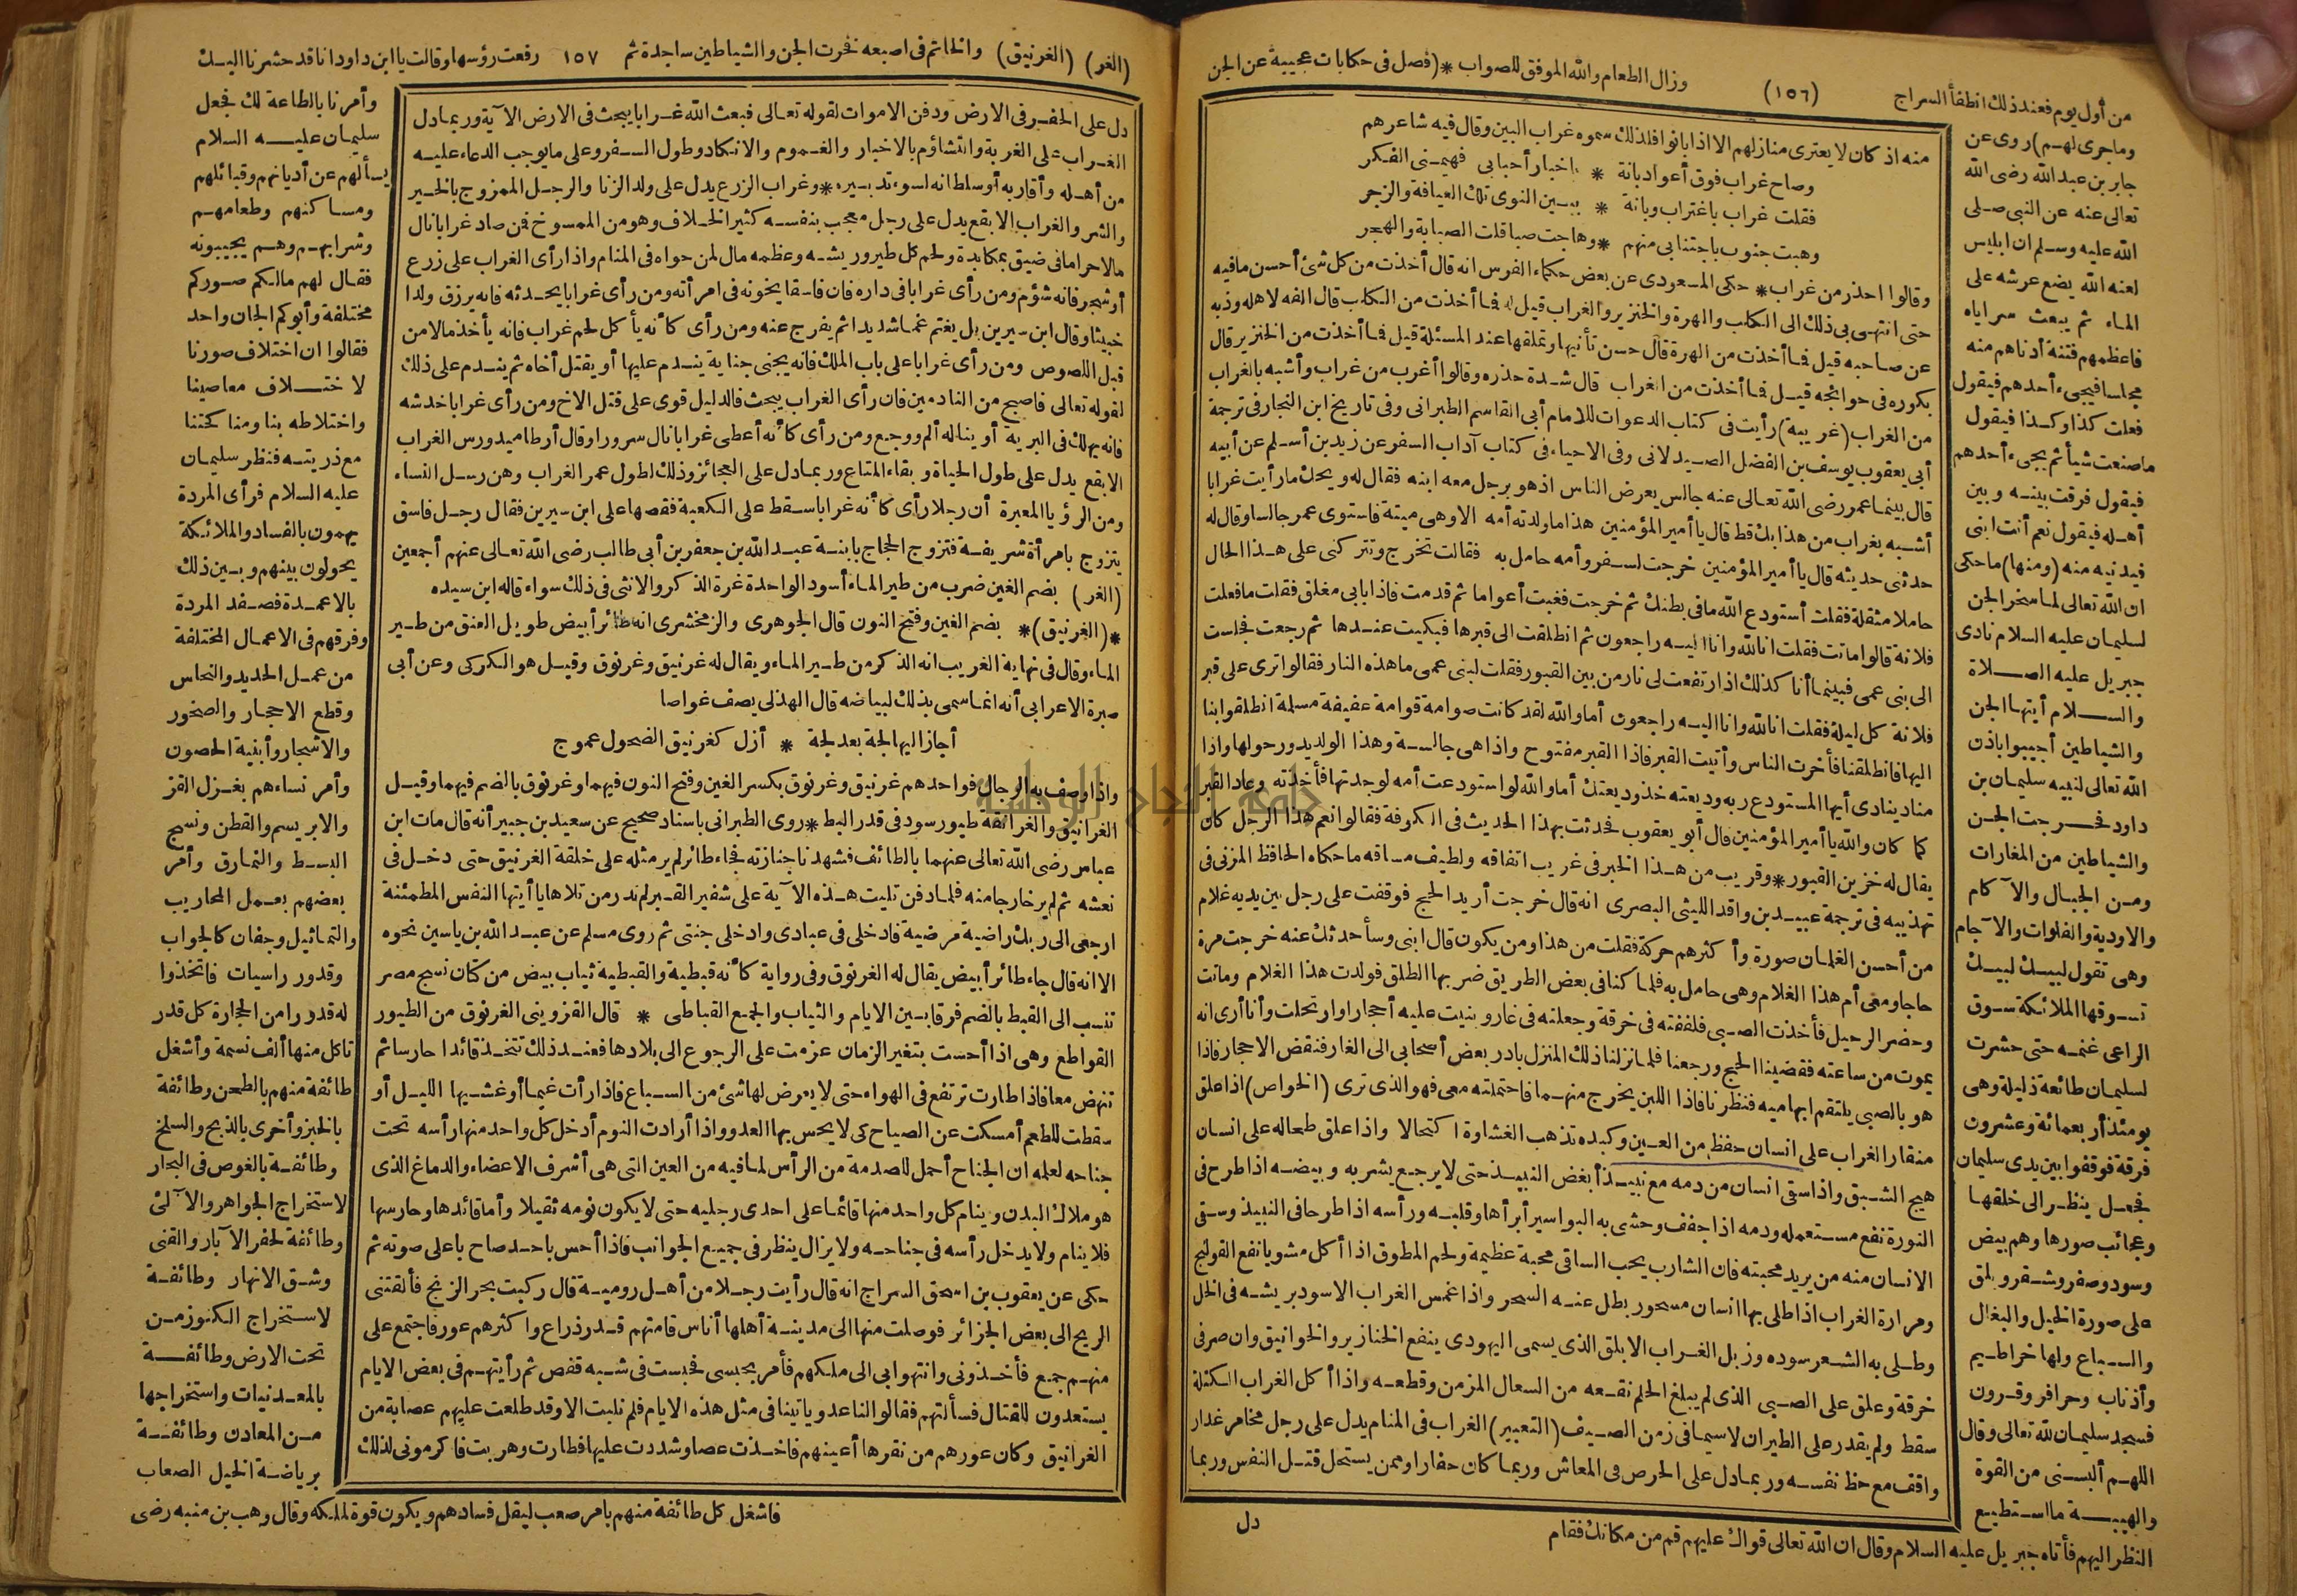 من أول يوم فعند ذلك انطفأ السراج (١٥٦) وزال الطعام والله الموفق للصواب * (فصل فى حكايات عجيبة عن الجن
وماجرى لهـم) روى عن
جابر بن عبد الله رضى الله
تعالى عنه عن النبى صلى
الله عليه وسلم ان ابليس
لعنه الله يضع عرشه على
الماء ثم يبعث سراياه
فاعظمهم فتنة أدناهم منه
مجلسا فيجىء أحدهم فيقول
فعلت كذا وكذا فيقول
ماصنعت شيأ ثم يجىء أحدهم
فيقول فرقت بينه وبين
أهله فيقول نعم أنت ابنى
فيدنيه منه (ومنها) ماحكى
ان الله تعالى لما سخر الجن
لسليمان عليه السلام نادى
جبريل عليه الصلاة
والسلام أيتها الجن
والشياطين أجيبوا باذن
الله تعالى لنبيه سليمان بن
داود فخرجت الجن
والشياطين من المغارات
ومن الجبال والآكام
والاودية والفلوات والآجام
وهى تقول لبيك لبيك
تسوقها الملائكة سوق
الراعى غنمه حتى حشرت
لسليمان طائعة ذليلة وهى
يومئذ أربعمائة وعشرون
فرقة فوقفوا بين يدى سليمان
فجعل ينظر الى خلقها
وعجائب صورها وهم بيض
وسود وصفر وشقر وبلق
على صورة الخيل والبغال
والسباع ولها خراطيم
وأذناب وحوافر وقرون
فسجد سليمان لله تعالى وقال
اللهم ألبسنى من القوة
والهيبة ما استطيع
النظر اليهم فأتاه جبريل عليه السلام وقال ان الله تعالى قواك عليهم قم من مكانك فقام
منه اذ كان لا يعترى منازلهم الا اذا بانوا فلذلك سموه غراب البين وقال فيه شاعرهم
وصاح غراب فوق أعواد بانة * باخبار أحبابى فهيمنى الفكر
فقلت غراب باغتراب وبانة * ببين النوى تلك العيافة والزجر
وهبت جنوب باجتنابى منهم * وهاجت صبا قلت الصبابة والهجر
وقالوا احذر من غراب * حكى المسعودى عن بعض حكماء الفرس انه قال أخذت من كل شئ أحسن مافيه
حتى انتهى بى ذلك الى الكلب والهرة والخنزير والغراب قيل له فما أخذت من الكلب قال الفه لاهله وذبه
عن صاحبه قيل فما أخذت من الهرة قال حسن تأنيها وتملقها عند المسئلة قيل فما أخذت من الخنزير قال
بكوره فى حوائجه قيل فما أخذت من الغراب قال شدة حذره وقالوا أغرب من غراب وأشبه بالغراب
من الغراب (غريبة) رأيت فى كتاب الدعوات للامام أبى القاسم الطبرانى وفى تاريخ ابن النجار فى ترجمة
أبى يعقوب يوسف بن الفضل الصيدلانى وفى الاحياء فى كتاب آداب السفر عن زيد بن أسلم عن أبيه
قال بينما عمر رضى الله تعالى عنه جالس يعرض الناس اذ هو برجل معه ابنه فقال له ويحك مارأيت غرابا
أشبه بغراب من هذا بك قط قال يا أمير المؤمنين هذا ماولدته أمه الا وهى ميتة فاستوى عمر جالسا وقال له
حدثنى حديثه قال يا أمير المؤمنين خرجت لسفر وأمه حامل به فقالت تخرج وتتركنى على هذا الحال
حاملا مثقلة فقلت أستودع الله مافى بطنك ثم خرجت فغبت أعواما ثم قدمت فاذا بابى مغلق فقلت مافعلت
فلانة قالوا ماتت فقلت انا لله وانا اليه راجعون ثم انطلقت الى قبرها فبكيت عندها ثم رجعت فجلست
الى بنى عمى فبينما أنا كذلك اذ ارتفعت لى نار من بين القبور فقلت لبنى عمى ماهذه النار فقالوا ترى على قبر
فلانة كل ليلة فقلت انا لله وانا اليه راجعون أما والله لقد كانت صوامة قوامة عفيفة مسلمة انطلقوا بنا
اليها فانطلقنا فأخرت الناس وأتيت القبر فاذا القبر مفتوح واذا هى جالسة وهذا الوليد يدور حولها واذا
مناد ينادى أيها المستودع ربه وديعته خذ وديعتك أما والله لو استودعت أمه لوجدتها فأخذته وعاد القبر
كما كان والله يا أمير المؤمنين قال أبو يعقوب فحدثت بهذا الحديث فى الكوفة فقالوا نعم هذا الرجل كان
يقال له خزين القبور * وقريب من هذا الخبر فى غريب اتفاقه ولطيف مساقه ماحكاه الحافظ المزنى فى
تهذيبه فى ترجمة عبيد بن واقد الليثى البصرى انه قال خرجت أريد الحج فوقفت على رجل بين يديه غلام
من أحسن الغلمان صورة وأكثرهم حركة فقلت من هذا ومن يكون قال ابنى وسأحدثك عنه خرجت مرة
حاجا ومعى أم هذا الغلام وهى حامل به فلما كنا فى بعض الطريق ضربها الطلق فولدت هذا الغلام وماتت
وحضر الرحيل فأخذت الصبى فلففته فى خرقة وجعلته فى غار وبنيت عليه أحجارا وارتحلت وأنا أرى انه
يموت من ساعته فقضينا الحج ورجعنا فلما نزلنا ذلك المنزل بادر بعض أصحابى الى الغار فنقض الاحجار فاذا
هو بالصبى يلتقم ابهاميه فنظرنا فاذا اللبن يخرج منهما فاحتملته معى فهو الذى ترى (الخواص) اذا علق
منقار الغراب على انسان حفظ من العين وكبده تذهب الغشاوة اكتحالا واذا علق طحاله على انسان
هيج الشبق واذا سقى انسان من دمه مع نبيذ أبغض النبيذ حتى لا يرجع يشربه وبيضه اذا طرح فى
النورة نفع مستعمله ودمه اذا جفف وحشى به البواسير أبرأها وقلبه ورأسه اذا طرحا فى النبيذ وسقى
الانسان منه من يريد محبته فان الشارب يحب الساقى محبة عظيمة ولحم المطوق اذا أكل مشويا نفع القولنج
ومرارة الغراب اذا طلى بها انسان مسحور بطل عنه السحر واذا غمس الغراب الاسود بريشه فى الخل
وطلى به الشعر سوده وزبل الغراب الابلق الذى يسمى اليهودى ينفع الخنازير والخوانيق وان صر فى
خرقة وعلق على الصبى الذى لم يبلغ الحلم نفعه من السعال المزمن وقطعه واذا أكل الغراب الكتلة
سقط ولم يقدر على الطيران لاسيما فى زمن الصيف (التعبير) الغراب فى المنام يدل على رجل مخامر غدار
واقف مع حظ نفسه وربما دل على الحرص فى المعاش وربما كان حفارا وممن يستحل قتل النفس وربما
دل
(الغر) (الغرنيق) والخاتم فى اصبعه فخرت الجن والشياطين ساجدة ثم ١٥٧ رفعت رؤسها وقالت يا ابن داود انا قد حشرنا اليك
دل على الحفر فى الارض ودفن الاموات لقوله تعالى فبعث الله غرابا يبحث فى الارض الآية وربما دل
الغراب على الغربة والتشاؤم بالاخبار والغموم والانكاد وطول السفر وعلى مايوجب الدعاء عليه
من أهله وأقاربه أو سلطانه لسوء تدبيره * وغراب الزرع يدل على ولد الزنا والرجل الممزوج بالخير
والشر والغراب الابقع يدل على رجل معجب بنفسه كثير الخلاف وهو من الممسوخ فمن صاد غرابا نال
مالا حراما فى ضيق بمكابدة ولحم كل طير وريشه وعظمه مال لمن حواه فى المنام واذا رأى الغراب على زرع
أو شجر فانه شؤم ومن رأى غرابا فى داره فان فاسقا يخونه فى امرأته ومن رأى غرابا يحدثه فانه يرزق ولدا
خبيثا وقال ابن سيرين بل يغتم غما شديدا ثم يفرج عنه ومن رأى كأنه يأكل لحم غراب فانه يأخذ مالا من
قبل اللصوص ومن رأى غرابا على باب الملك فانه يجنى جناية يندم عليها أو يقتل أخاه ثم يندم على ذلك
لقوله تعالى فاصبح من النادمين فان رأى الغراب يبحث فالدليل قوى على قتل الاخ ومن رأى غرابا خدشه
فانه يهلك فى البرية أو يناله ألم ووجع ومن رأى كأنه أعطى غرابا نال سرورا وقال أرطاميدورس الغراب
الابقع يدل على طول الحياة وبقاء المتاع وربما دل على العجائز وذلك لطول عمر الغراب وهن رسل النساء
ومن الرؤيا المعبرة أن رجلا رأى كأنه غرابا سقط على الكعبة فقصها على ابن سيرين فقال رجل فاسق
يتزوج بامرأة شريفة فتزوج الحجاج بابنة عبد الله بن جعفر بن أبى طالب رضى الله تعالى عنهم أجمعين
(الغر) بضم الغين ضرب من طير الماء أسود الواحدة غرة الذكر والانثى فى ذلك سواء قاله ابن سيده
*(الغرنيق)* بضم الغين وفتح النون قال الجوهرى والزمخشرى انه طائر أبيض طويل العنق من طير
الماء وقال فى نهاية الغريب انه الذكر من طير الماء ويقال له غرنيق وغرنوق وقيل هو الكركى وعن أبى
صبرة الاعرابى أنه انما سمى بذلك لبياضه قال الهذلى يصف غواصا
أجاز اليها لجة بعد لجة * أزل كغرنيق الضحول عموج
واذا وصف به الرجال فواحدهم غرنيق وغرنوق بكسر الغين وفتح النون فيهما وغرنوق بالضم فيهما وقيل
الغرانيق والغرانقة طيور سود فى قدر البط * روى الطبرانى باسناد صحيح عن سعيد بن جبير أنه قال مات ابن
عباس رضى الله تعالى عنهما بالطائف فشهدنا جنازته فجاء طائر لم ير مثله على خلقة الغرنيق حتى دخل فى
نعشه ثم لم ير خارجا منه فلما دفن تليت هذه الآية على شفير القبر لم ندر من تلاها يا أيتها النفس المطمئنة
ارجعى الى ربك راضية مرضية فادخلى فى عبادى وادخلى جنتى ثم روى مسلم عن عبد الله بن ياسين نحوه
الا انه قال جاء طائر أبيض يقال له الغرنوق وفى رواية كأنه قبطية والقبطية ثياب بيض من كتان نسج مصر
تنسب الى القبط بالضم فرقا بين الايام والثياب والجمع القباطى * قال القزوينى الغرنوق من الطيور
القواطع وهى اذا أحست بتغير الزمان عزمت على الرجوع الى بلادها فعند ذلك تتخذ قائدا حارسا ثم
تنهض معا فاذا طارت ترتفع فى الهواء حتى لا يعرض لها شئ من السباع فاذا رأت غيما أو غشيها الليل أو
سقطت للطعم أمسكت عن الصياح كى لا يحس بها العدو واذا أرادت النوم أدخل كل واحد منها رأسه تحت
جناحه لعلمه ان الجناح أحمل للصدمة من الرأس لما فيه من العين التى هى أشرف الاعضاء والدماغ الذى
هو ملاك البدن وينام كل واحد منها قائما على احدى رجليه حتى لا يكون نومه ثقيلا وأما قائدها وحارسها
فلا ينام ولا يدخل رأسه فى جناحه ولا يزال ينظر فى جميع الجوانب فاذا أحس باحد صاح باعلى صوته ثم
حكى عن يعقوب بن اسحق السراج انه قال رأيت رجلا من أهل رومية قال ركبت بحر الزنج فألقتنى
الريح الى بعض الجزائر فوصلت منها الى مدينة أهلها أناس قامتهم قدر ذراع وأكثرهم عور فاجتمع على
منهم جمع فأخذونى وانتهوا بى الى ملكهم فأمر بحبسى فحبست فى شبه قفص ثم رأيتهم فى بعض الايام
يستعدون للقتال فسألتهم فقالوا لنا عدو ياتينا فى مثل هذه الايام فلم نلبث الا وقد طلعت عليهم عصابة من
الغرانيق وكان عورهم من نقرها أعينهم فاخذت عصا وشددت عليها فطارت وهربت فاكرمونى لذلك
وأمرنا بالطاعة لك فجعل
سليمان عليه السلام
يسألهم عن أديانهم وقبائلهم
ومساكنهم وطعامهم
وشرابهم وهم يجيبونه
فقال لهم مالكم صوركم
مختلفة وأبوكم الجان واحد
فقالوا ان اختلاف صورنا
لاختلاف معاصينا
واختلاطه بنا ومناكحتنا
مع ذريته فنظر سليمان
عليه السلام فرأى المردة
يهمون بالفساد والملائكة
يحولون بينهم وبين ذلك
بالاعمدة فصفد المردة
وفرقهم فى الاعمال المختلفة
من عمل الحديد والنحاس
وقطع الاحجار والصخور
والاشجار وأبنية الحصون
وأمر نساءهم بغزل القز
والابريسم والقطن ونسج
البسط والنمارق وأمر
بعضهم بعمل المحاريب
والتماثيل وجفان كالجواب
وقدور راسيات فاتخذوا
له قدورا من الحجارة كل قدر
تاكل منها ألف نسمة وأشغل
طائفة منهم بالطحن وطائفة
بالخبز وأخرى بالذبح والسلخ
وطائفة بالغوص فى البحار
لاستخراج الجواهر واللآلئ
وطائفة لحفر الآبار والقنى
وشق الانهار وطائفة
لاستخراج الكنوز من
تحت الارض وطائفة
بالمعدنيات واستخراجها
من المعادن وطائفة
برياضة الخيل الصعاب
فاشغل كل طائفة منهم بامر صعب ليقل فسادهم ويكون قوة لملكه وقال وهب بن منبه رضى
جامعة النجاح الوطنية